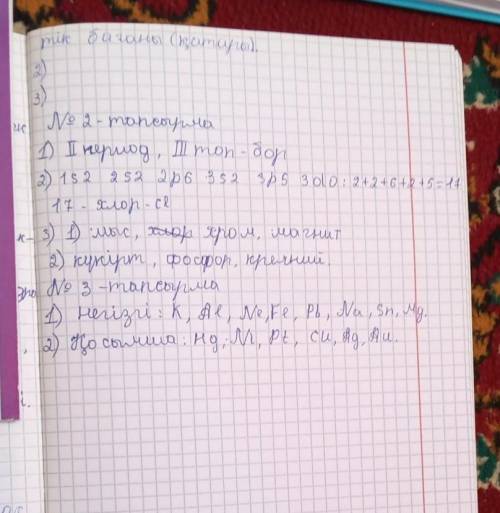 тік бағаны (қатары).
2)
3)
№ 2 - тапсырма
1) II период, III топ - бор
2) 1s2 2s2 2p6 3s2 3p5 3d0 : 2+2+6+2+5=17
17 - хлор - cl
3) 1) мыс, хром, магнит
2) күкірт, фосфор, кремний.
№ 3 - тапсырма
1) Негізгі : K, Al, Ne, Fe, Pb, Na, Sn, Mg.
2) Қосымша : Hg, Ni, Pt, Cu, Ag, Au.